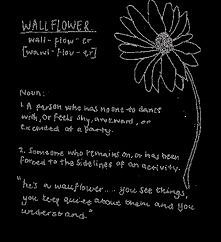 WALLFLOWER
wall - flow - er
[wawl - flou - er]
Noun:
1. A person who has no one to dance
with, or feels shy, awkward, or
excluded at a party.
2. Someone who remains on, or has been
forced to the sidelines of an activity.
"he's a wallflower... you see things,
you keep quiet about them and you
understand."